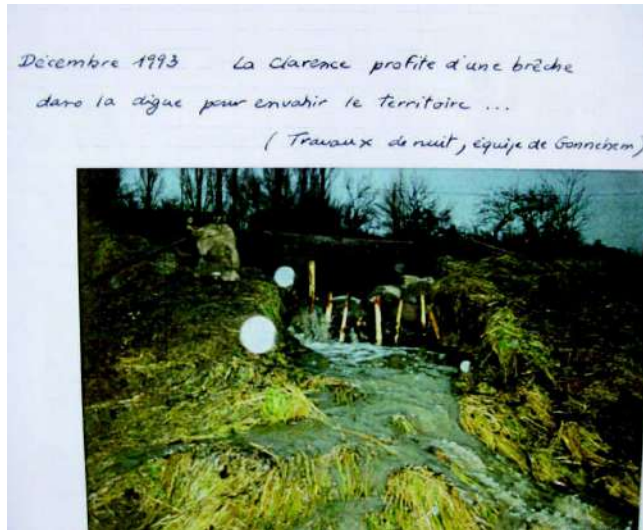 Décembre 1993 La Clarence profite d'une brèche
dans la digue pour envahir le territoire ...
( Travaux de nuit, équipe de Gonnehem)